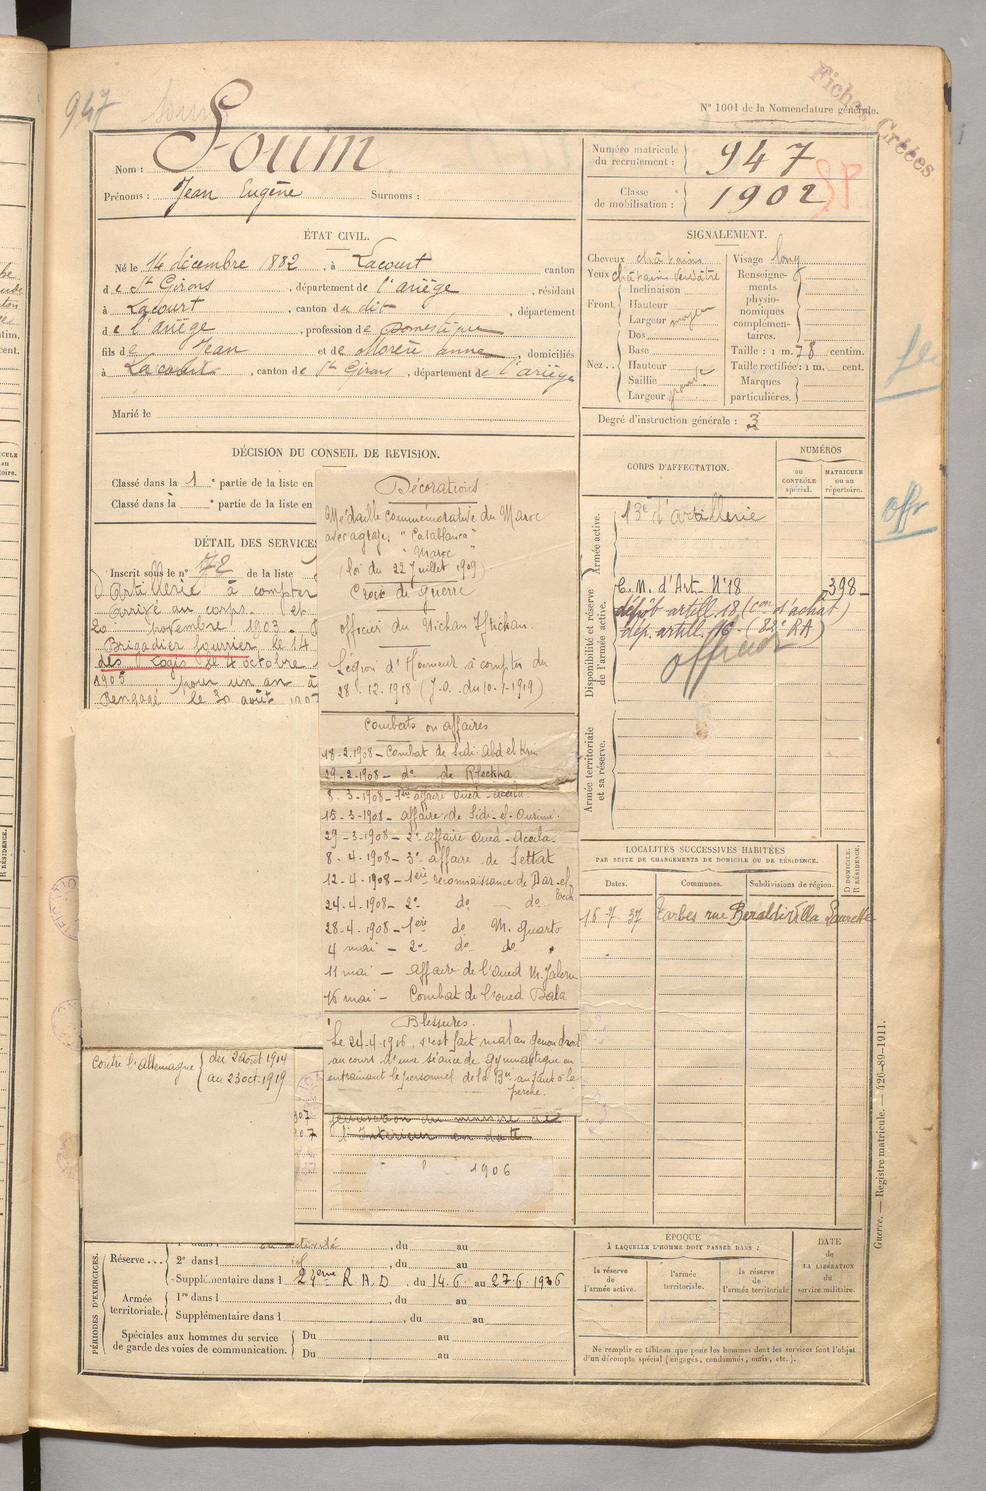 947
Fiches Créées
N° 1001 de la Nomenclature générale.
Nom : Soum
Prénoms : Jean Eugène Surnoms :
Numéro matricule du recrutement : 947
Classe de mobilisation : 1902
ÉTAT CIVIL.
Né le 14 décembre 1882, à Lacourt canton
de St Girons, département de l'ariège, résidant
à Lacourt, canton du dit, département
de l'ariège, profession de domestique
fils de Jean et de anne, domiciliés
à Lacourt, canton de St Girons, département de l'ariège
Marié le
SIGNALEMENT.
Cheveux châtains
Yeux châtains verdâtre
Front. Inclinaison
Hauteur
Largeur moyen
Nez.. Dos
Base
Hauteur
Saillie
Largeur
Visage long
Renseignements physionomiques complémentaires.
Taille : 1 m. 78 centim.
Taille rectifiée : 1 m. cent.
Marques particulières.
Degré d'instruction générale : 3
DÉCISION DU CONSEIL DE REVISION.
Classé dans la 1 e partie de la liste en
Classé dans la e partie de la liste en
DÉTAIL DES SERVICES
Inscrit sous le n° 72 de la liste
Artillerie à compter
Arrivé au corps. et
20 novembre 1903
Brigadier fourrier le 14
des Logis le 4 octobre
1905 pour un an à
Rengagé le 30 août 1907
Décorations
Médaille commémorative du Maroc
avec agrafes "Casablanca"
"Maroc"
(loi du 22 Juillet 1909)
Croix de guerre
Officier du Nichan Iftichan.
Légion d'Honneur à compter du
28.12.1918 (J.O. du 10-1-1919)
Combats ou affaires
18-2.1908 – Combat de Sidi Abd el Krim
29-2-1908 – do de Rfeckha
8-3-1908 – 1ère affaire Oued-Acila
15-3-1908 – affaire de Sidi-el-Ourimi.
29-3-1908 – 2e affaire Oued-Acila
8-4-1908 – 3e affaire de Settat
12-4-1908 – 1ère reconnaissance de Dar-el-
24-4-1908 – 2e do – do
28-4-1908 – 1ère do M. Quarto
4 mai – 2e do do
11 mai – affaire de l'oued M.
16 mai – Combat de l'oued Bala
Blessures.
Le 24-4-1916, s'est fait mal au genou droit
au cours d'une séance de gymnastique en
entrainant le personnel de la Bie au saut à la
perche.
Contre l'allemagne du 2 août 1914
au 23 oct. 1919
du ministre de
l'Intérieur en date
1906
CORPS D'AFFECTATION.
NUMÉROS
au contrôle spécial.
matricule ou au répertoire.
Armée active.
13e d'artillerie
Disponibilité et réserve de l'armée active.
C.M. d'Art N°18 398
dépôt artill. 18 (con d'achat)
dép. artill. 16 (82e RA)
officier
Armée territoriale et sa réserve.
LOCALITÉS SUCCESSIVES HABITÉES
PAR SUITE DE CHANGEMENTS DE DOMICILE OU DE RÉSIDENCE.
Dates. Communes. Subdivisions de région. D DOMICILE. R RÉSIDENCE.
16-7-37 Tarbes rue Beraldi Villa Laurette
PÉRIODES D'EXERCICES.
Réserve... 1re dans l , du au
2e dans l , du au
Supplémentaire dans l 24eme R.A.D. , du 14.6. au 27.6.1936
Armée territoriale. 1re dans l , du au
Supplémentaire dans l , du au
Spéciales aux hommes du service de garde des voies de communication. Du au
Du au
ÉPOQUE
À LAQUELLE L'HOMME DOIT PASSER DANS :
la réserve de l'armée active.
l'armée territoriale.
la réserve de l'armée territoriale
DATE
de
LA LIBÉRATION
du
service militaire.
Ne remplir ce tableau que pour les hommes dont les services font l'objet
d'un décompte spécial (engagés, condamnés, omis, etc.).
Guerre. — Registre matricule. — 426-89-1911.